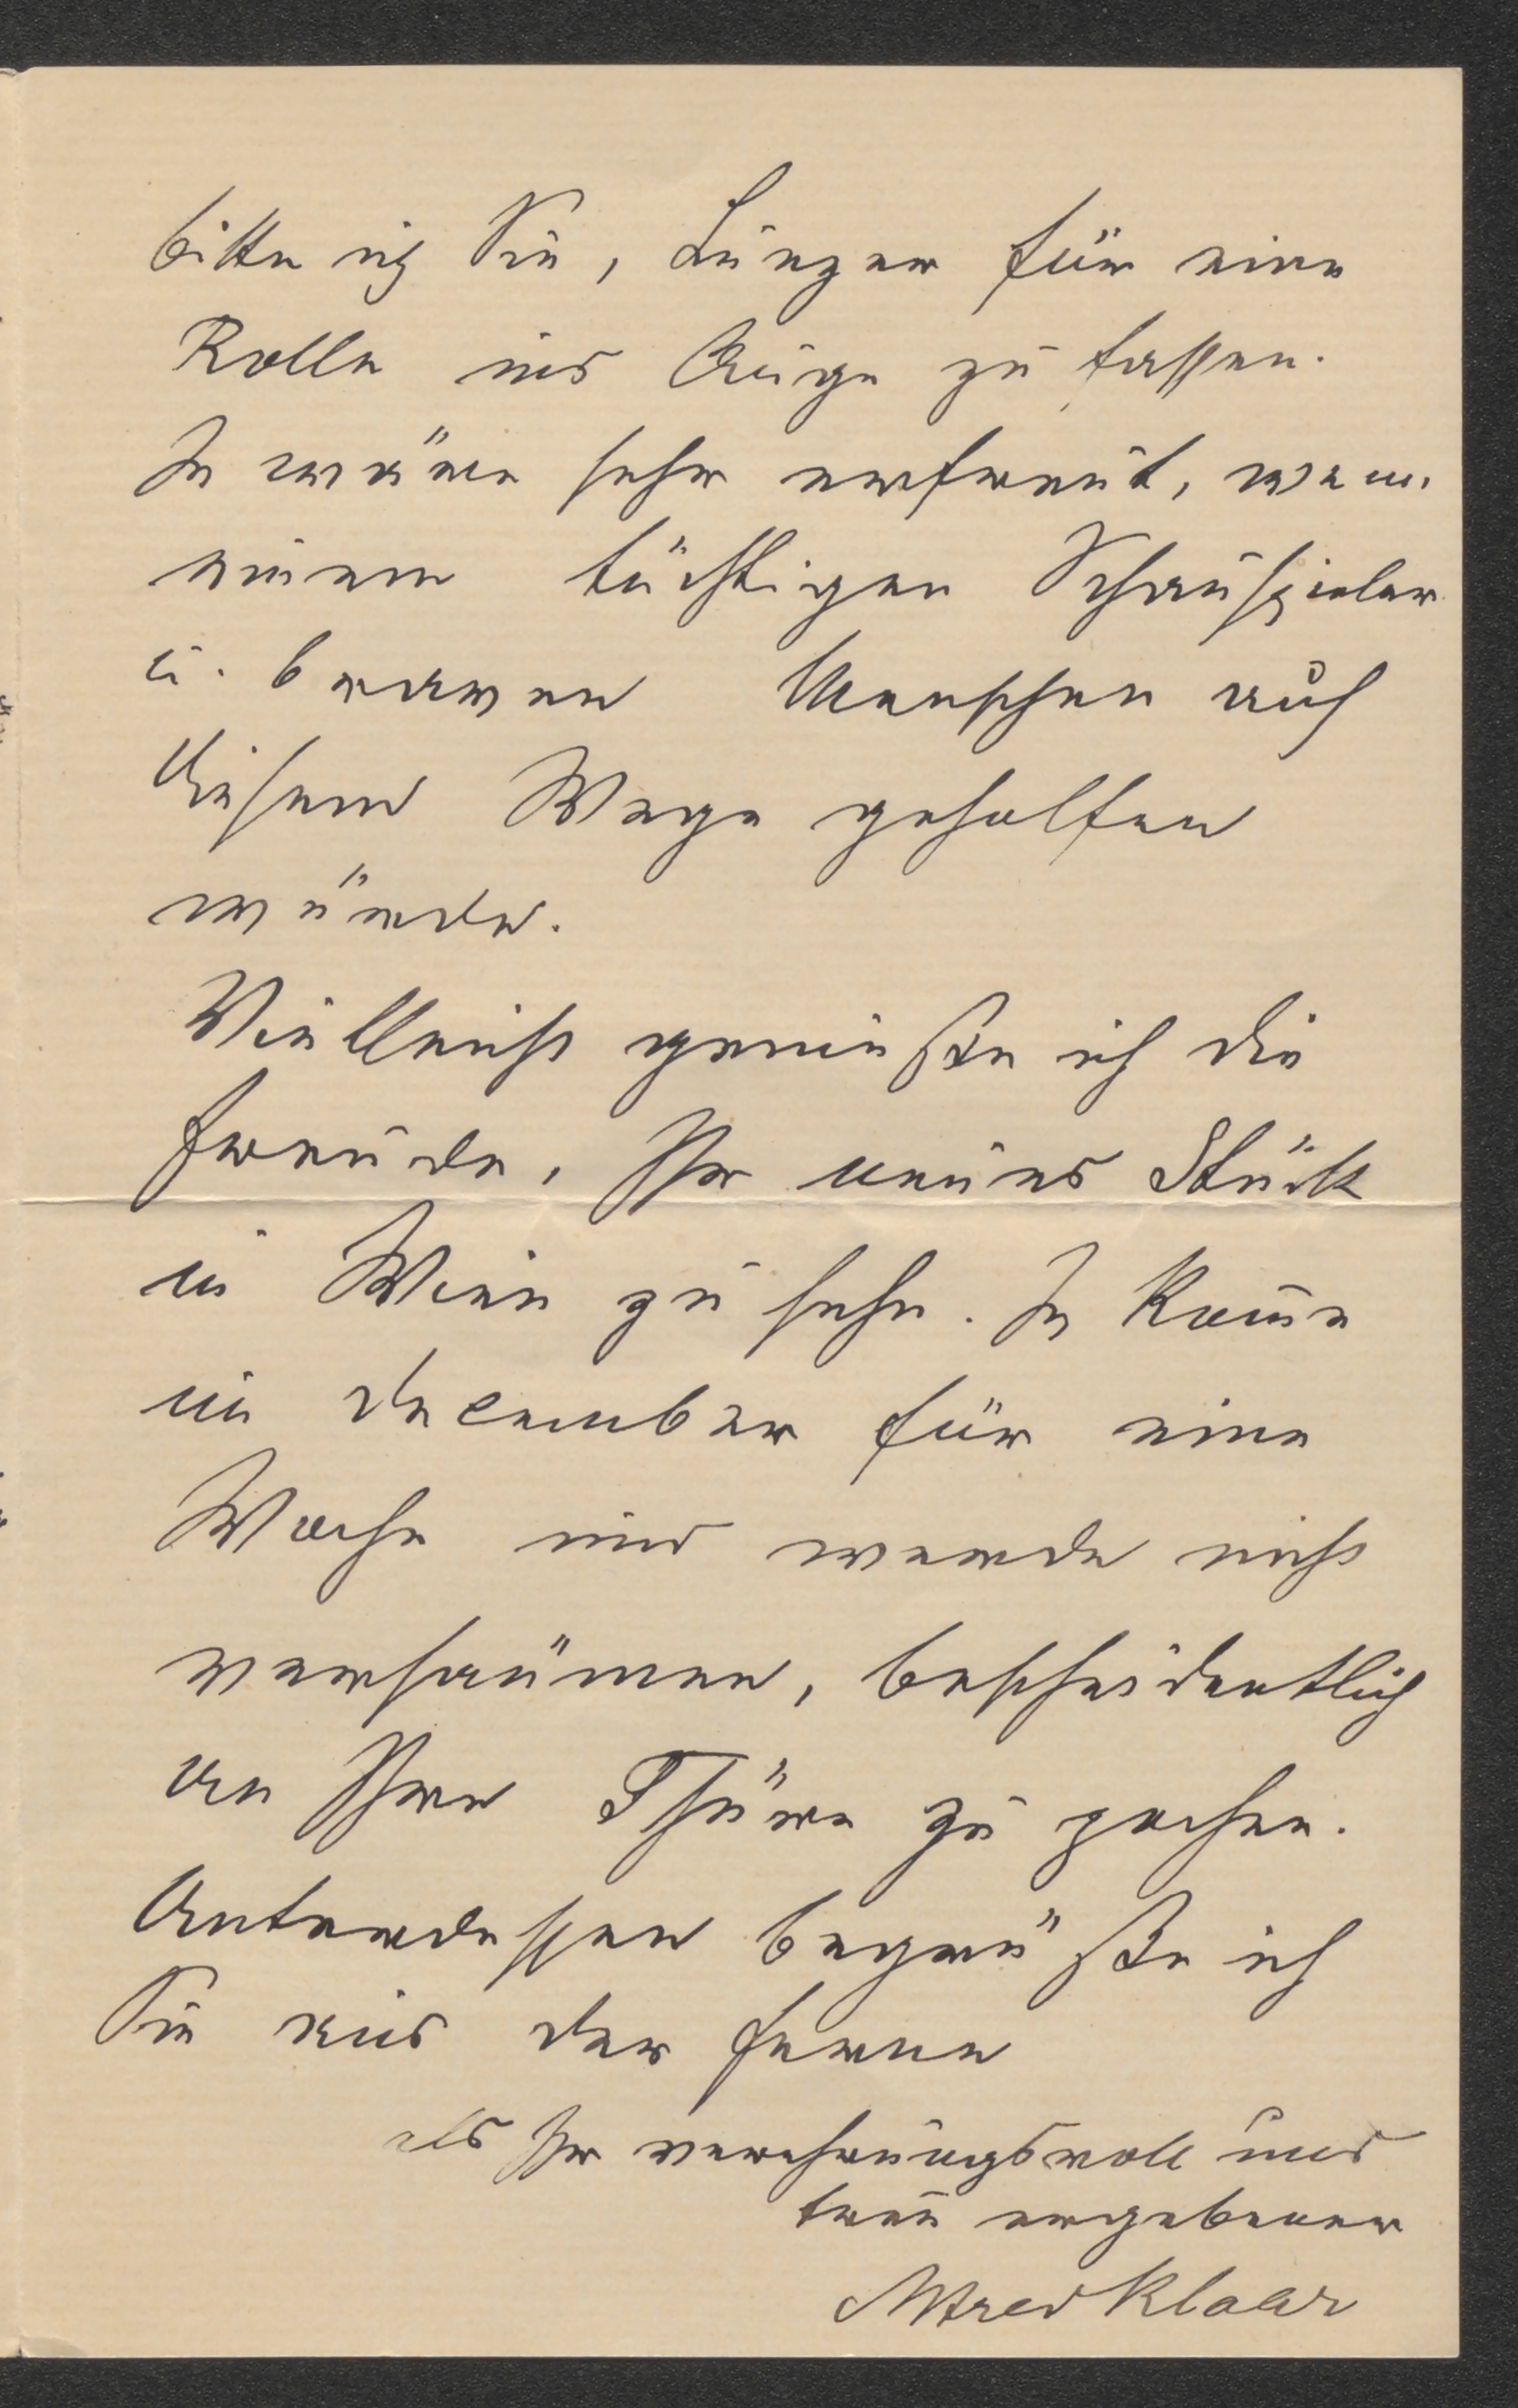 bitte ich Sie, Lünzer für eine
Rolle ins Auge zu fassen.
Ich wäre sehr erfreut, wenn
einem tüchtigen Schauspieler
u. braven Menschen auf
diesem Wege geholfen
würde.
Vielleicht genieße ich die
Freude, Ihr neues Stück
in Wien zu sehn. Ich kom̄e
im December für eine
Woche und werde nicht
versäumen, bescheidentlich
an Ihre Thüre zu pochen.
Unterdessen begrüße ich
Sie aus der Ferne
als Ihr verehrungsvoll und
treu ergebener
Alfred Klaar